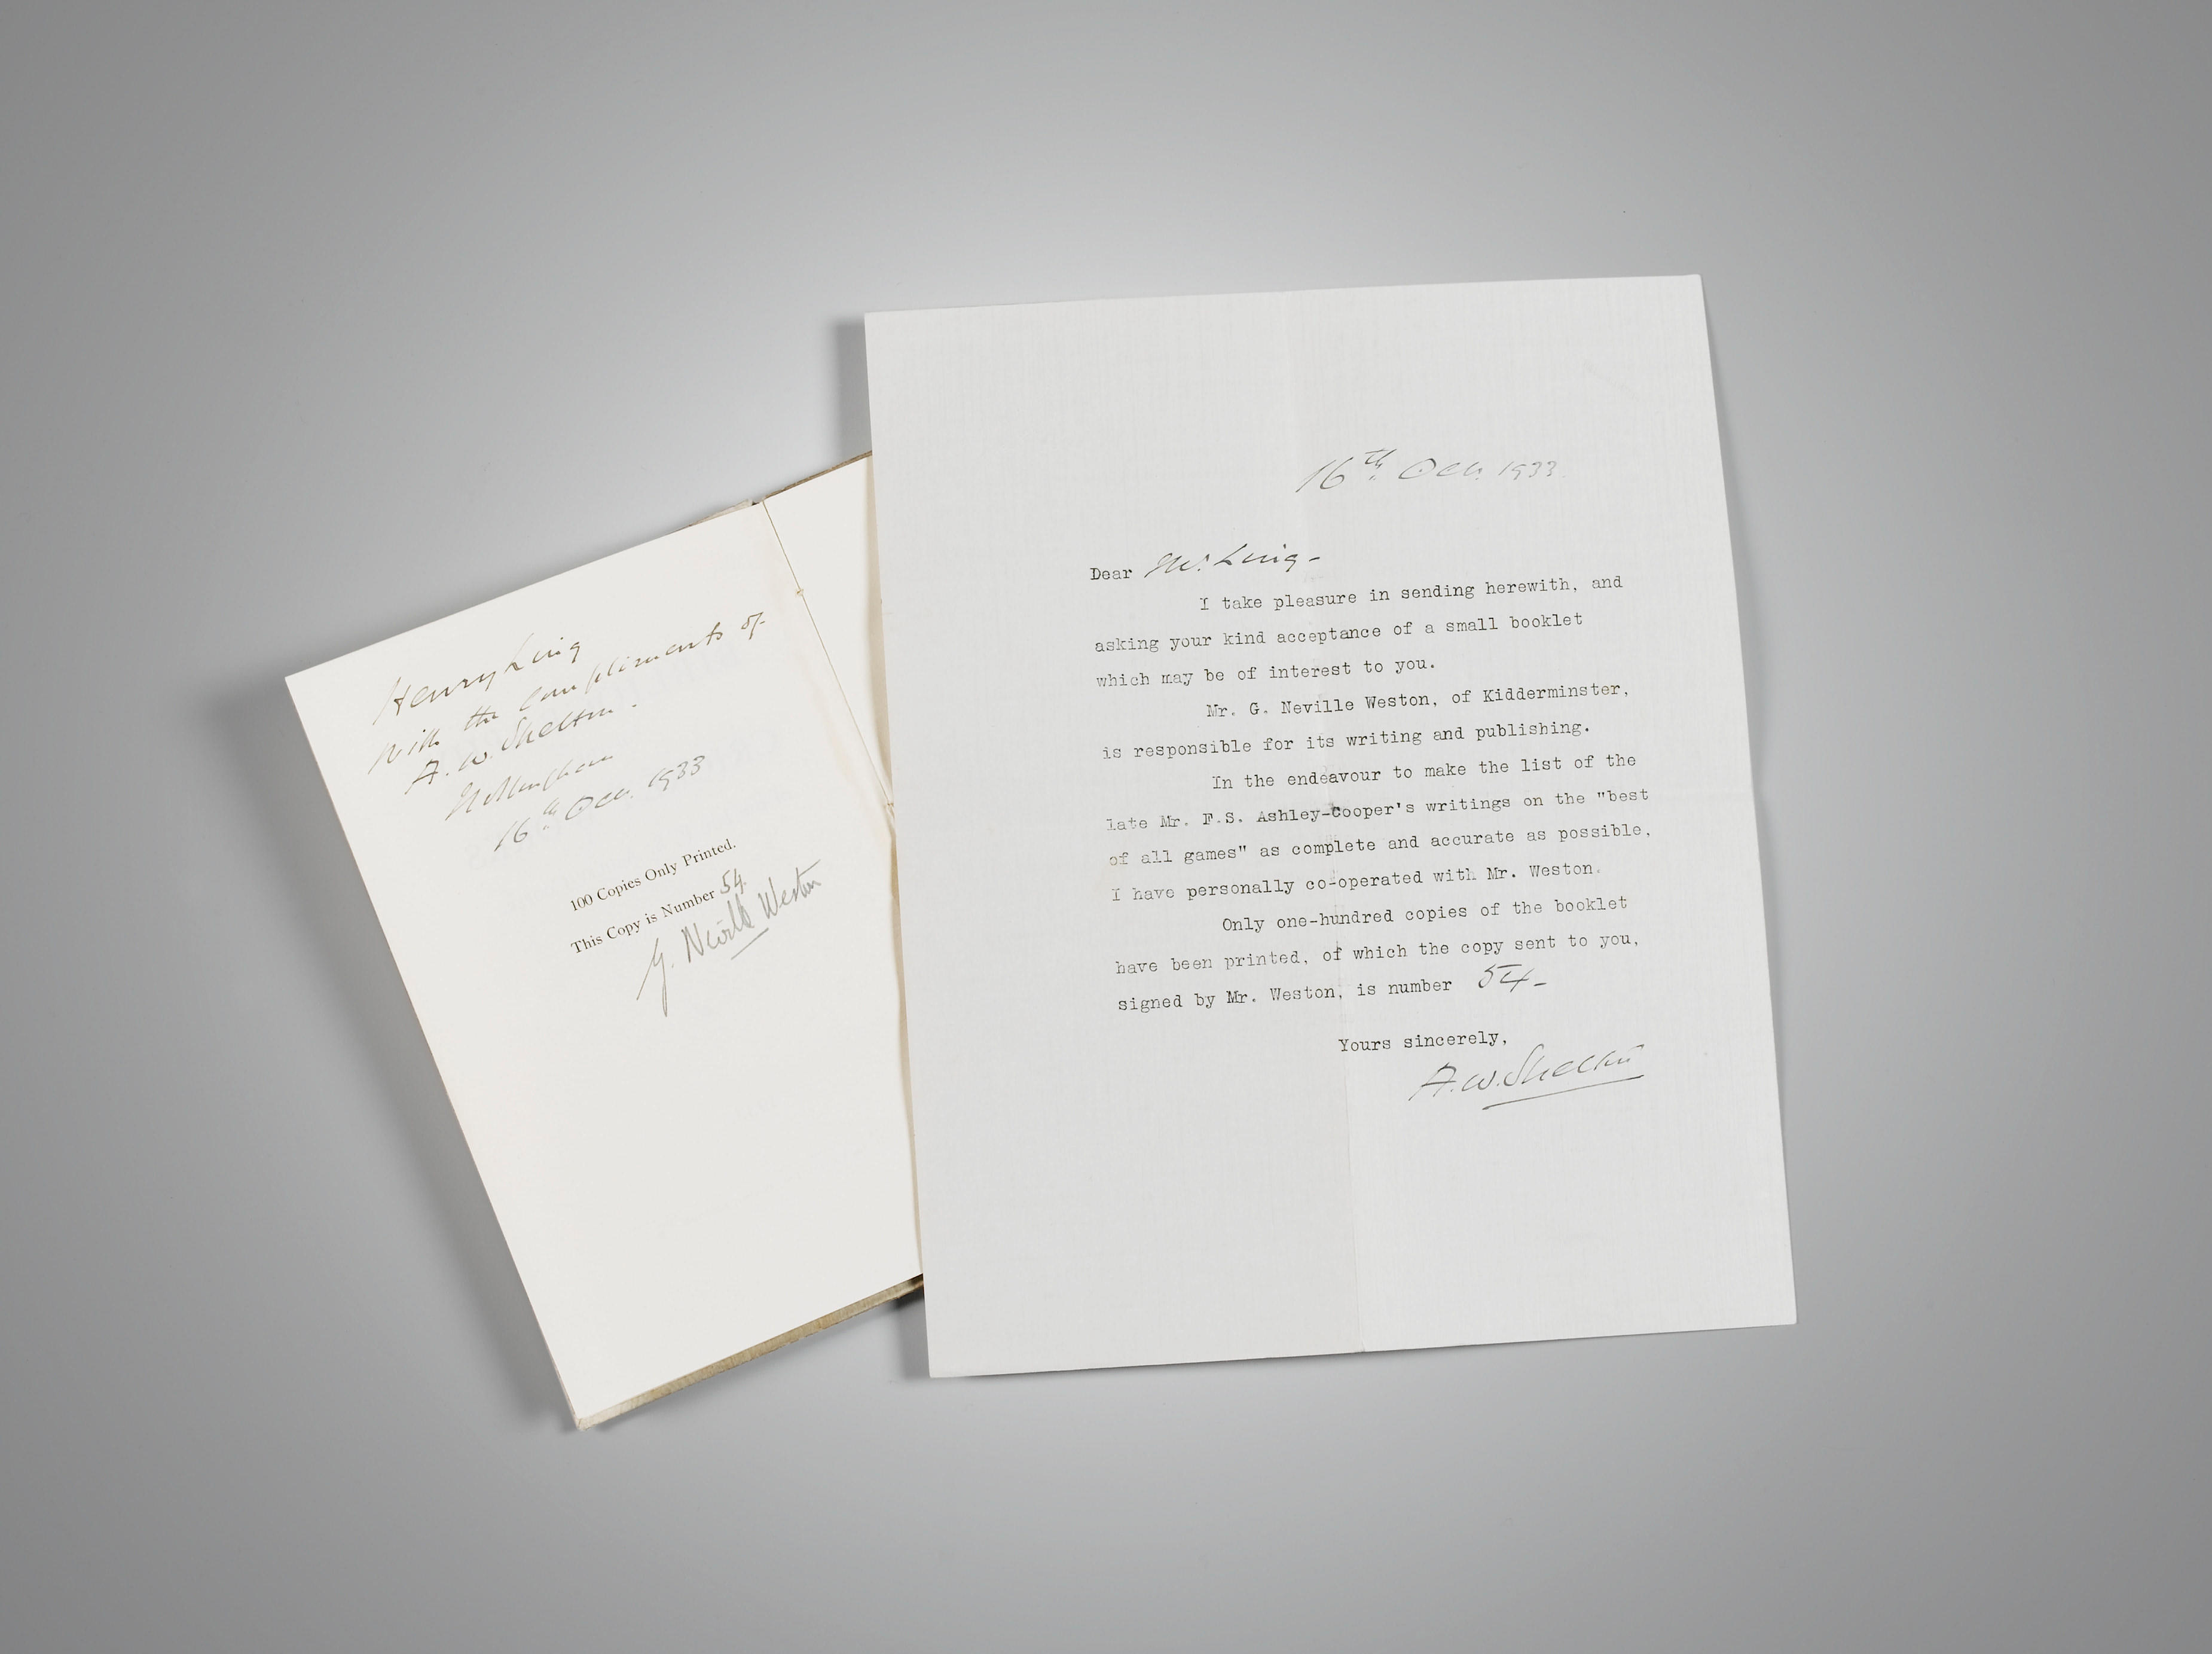 Henry Ling
with the compliments of
A. W. Shelton.
Nottingham
16th Oct. 1933
100 Copies Only Printed.
This Copy is Number 54
G. Neville Weston
16th Oct. 1933.
Dear Mr. Ling -
I take pleasure in sending herewith, and
asking your kind acceptance of a small booklet
which may be of interest to you.
Mr. G. Neville Weston, of Kidderminster,
is responsible for its writing and publishing.
In the endeavour to make the list of the
late Mr. F.S. Ashley-Cooper's writings on the "best
of all games" as complete and accurate as possible,
I have personally co-operated with Mr. Weston.
Only one-hundred copies of the booklet
have been printed, of which the copy sent to you,
signed by Mr. Weston, is number 54-
Yours sincerely,
A.W. Shelton